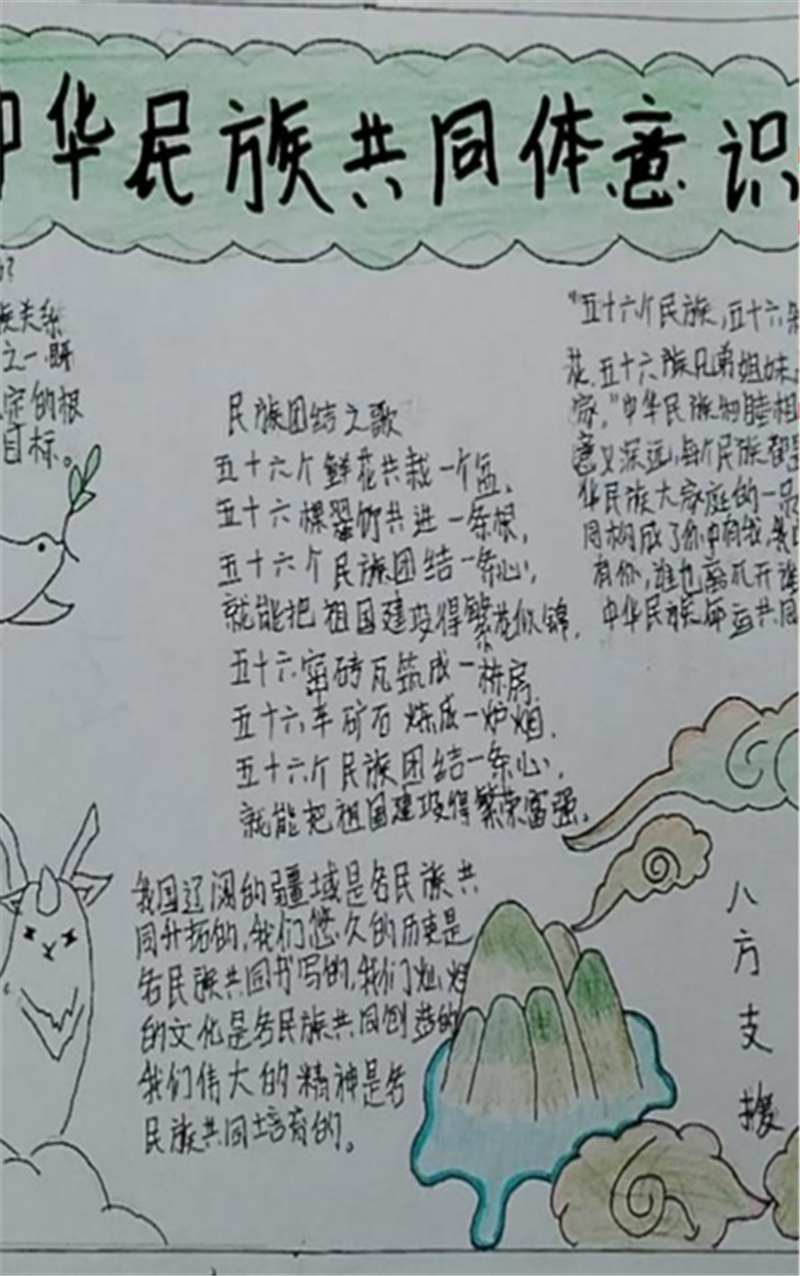 中华民族共同体意识
族关系
之一.既
家的根
目标。
民族团结之歌
五十六个鲜花共栽一个盆,
五十六棵翠竹共进一条根,
五十六个民族团结一条心,
就能把祖国建设得繁花似锦,
五十六窑砖瓦筑成一栋房,
五十六车矿石炼成一炉烟,
五十六个民族团结一条心,
就能把祖国建设得繁荣富强。
我国辽阔的疆域是各民族共
同开拓的,我们悠久的历史是
各民族共同书写的,我们灿烂
的文化是各民族共同创造的
我们伟大的精神是各
民族共同培育的。
"五十六个民族,五十六
花,五十六族兄弟姐妹
家,"中华民族和睦相
意义深远,每个民族都是
华民族大家庭的一员
同构成了你中有我,我
有你,谁也离不开谁
中华民族命运共同
八方支援